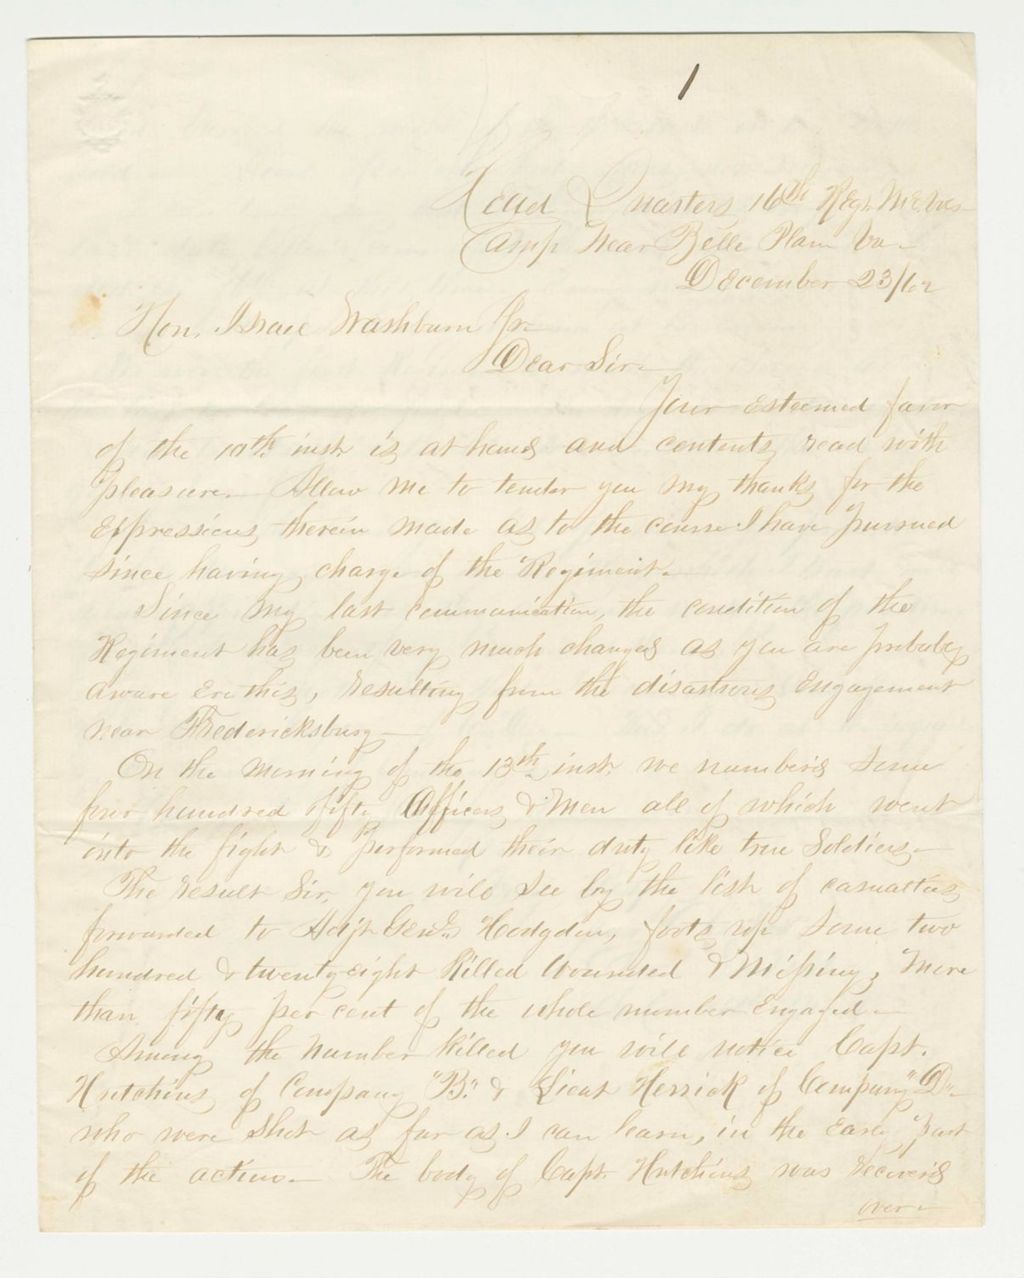 1
Head Quarters 16th Regt. Me. Vols
Camp Near Belle Plain Va-
December 23/62
Hon. Israel Washburn Jr-
Dear Sir-
Your esteemed favor
of the 10th inst is at hand and contents read with
pleasure- Allow me to tender you my thanks for the
Expressions therein made as to the course I have pursued
since having charge of the Regiment-
Since my last communication, the condition of the
Regiment has been very much changed as you are probably
aware ere this, resulting from the disastrous Engagement
near Fredericksburg-
On the morning of the 13th inst. we numbered some
four hundred fifty Officers & Men all of which went
into the fight & performed their duty like true Soldiers-
The result Sir, you will see by the list of casualties
forwarded to Adjt Genl Hodgdon, foots up some two
hundred & twenty eight Killed Wounded & Missing, More
than fifty per cent of the whole number Engaged-
Among the Number Killed you will notice Capt.
Hutchins of Company "B." & Lieut Herrick of Company "D"
who were shot as far as I can learn, in the Early part
of the action- The body of Capt. Hutchins was recovered
over-